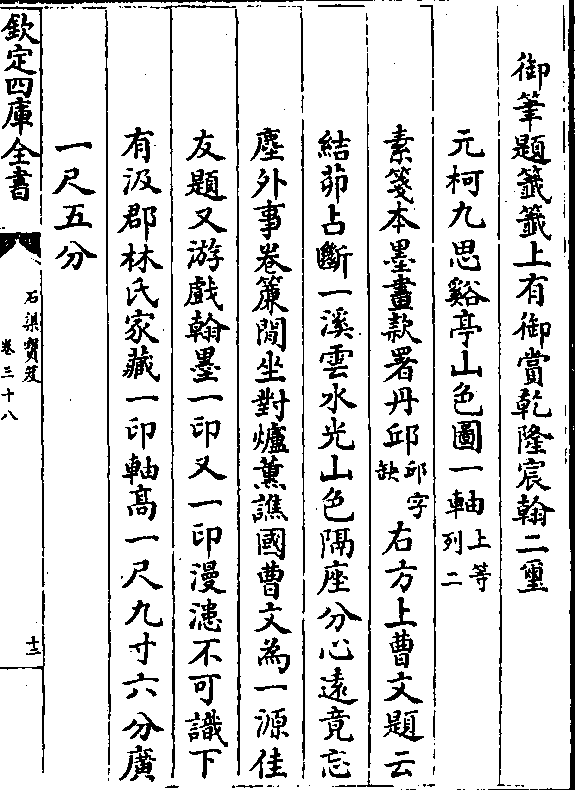 御筆題籤籤上有御賞乾隆宸翰二璽
元柯九思谿亭山色圖一軸上等列二
素箋本墨畫款署丹邱邱字缺右方上曹文題云
結茆占斷一溪雲水光山色隔座分心遠竟忘
塵外事卷簾閒坐對爐薰譙國曹文為一源佳
友題又游戲翰墨一印又一印漫漶不可識下
有汲郡林氏家藏一印軸高一尺九寸六分廣
一尺五分
欽定四庫全書
石渠寶笈
卷三十八
十三